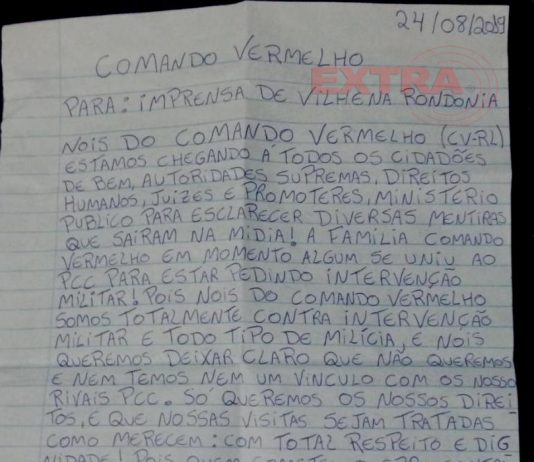 24/08/2019
COMANDO VERMELHO
EXTRA
PARA: IMPRENSA DE VILHENA RONDÔNIA
NOIS DO COMANDO VERMELHO (CV-RL)
ESTAMOS CHEGANDO Á TODOS OS CIDADÕES
DE BEM, AUTORIDADES SUPREMAS, DIREITOS
HUMANOS, JUIZES E PROMOTERES, MINISTÉRIO
PUBLICO PARA ESCLARECER DIVERSAS MENTIRAS
QUE SAIRAM NA MÍDIA! A FAMILIA COMANDO
VERMELHO EM MOMENTO ALGUM SE UNIU AO
PCC PARA ESTAR PEDINDO INTERVENÇÃO
MILITAR! POIS NOIS DO COMANDO VERMELHO
SOMOS TOTALMENTE CONTRA INTERVENÇÃO
MILITAR E TODO TIPO DE MILÍCIA, E NOIS
QUEREMOS DEIXAR CLARO QUE NÃO QUEREMOS
E NEM TEMOS NEM UM VINCULO COM OS NOSSO
RIVAIS PCC. SÓ QUEREMOS OS NOSSOS DIREI-
TOS, E QUE NOSSAS VISITAS SEJAM TRATADAS
COMO MERECEM: COM TOTAL RESPEITO E DIG
NIDADE! POIS QUEM